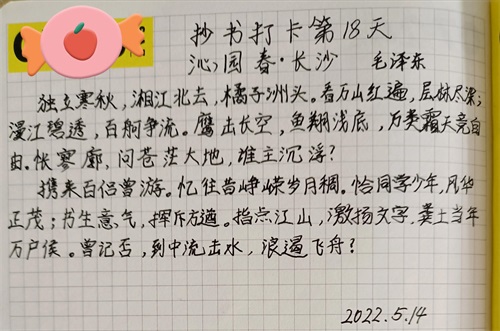 抄书打卡第18天
沁园春·长沙 毛泽东
独立寒秋,湘江北去,橘子洲头。看万山红遍,层林尽染;
漫江碧透,百舸争流。鹰击长空,鱼翔浅底,万类霜天竞自
由。怅寥廓,问苍茫大地,谁主沉浮?
携来百侣曾游。忆往昔峥嵘岁月稠。恰同学少年,风华
正茂;书生意气,挥斥方遒。指点江山,激扬文字,粪土当年
万户侯。曾记否,到中流击水,浪遏飞舟?
2022.5.14